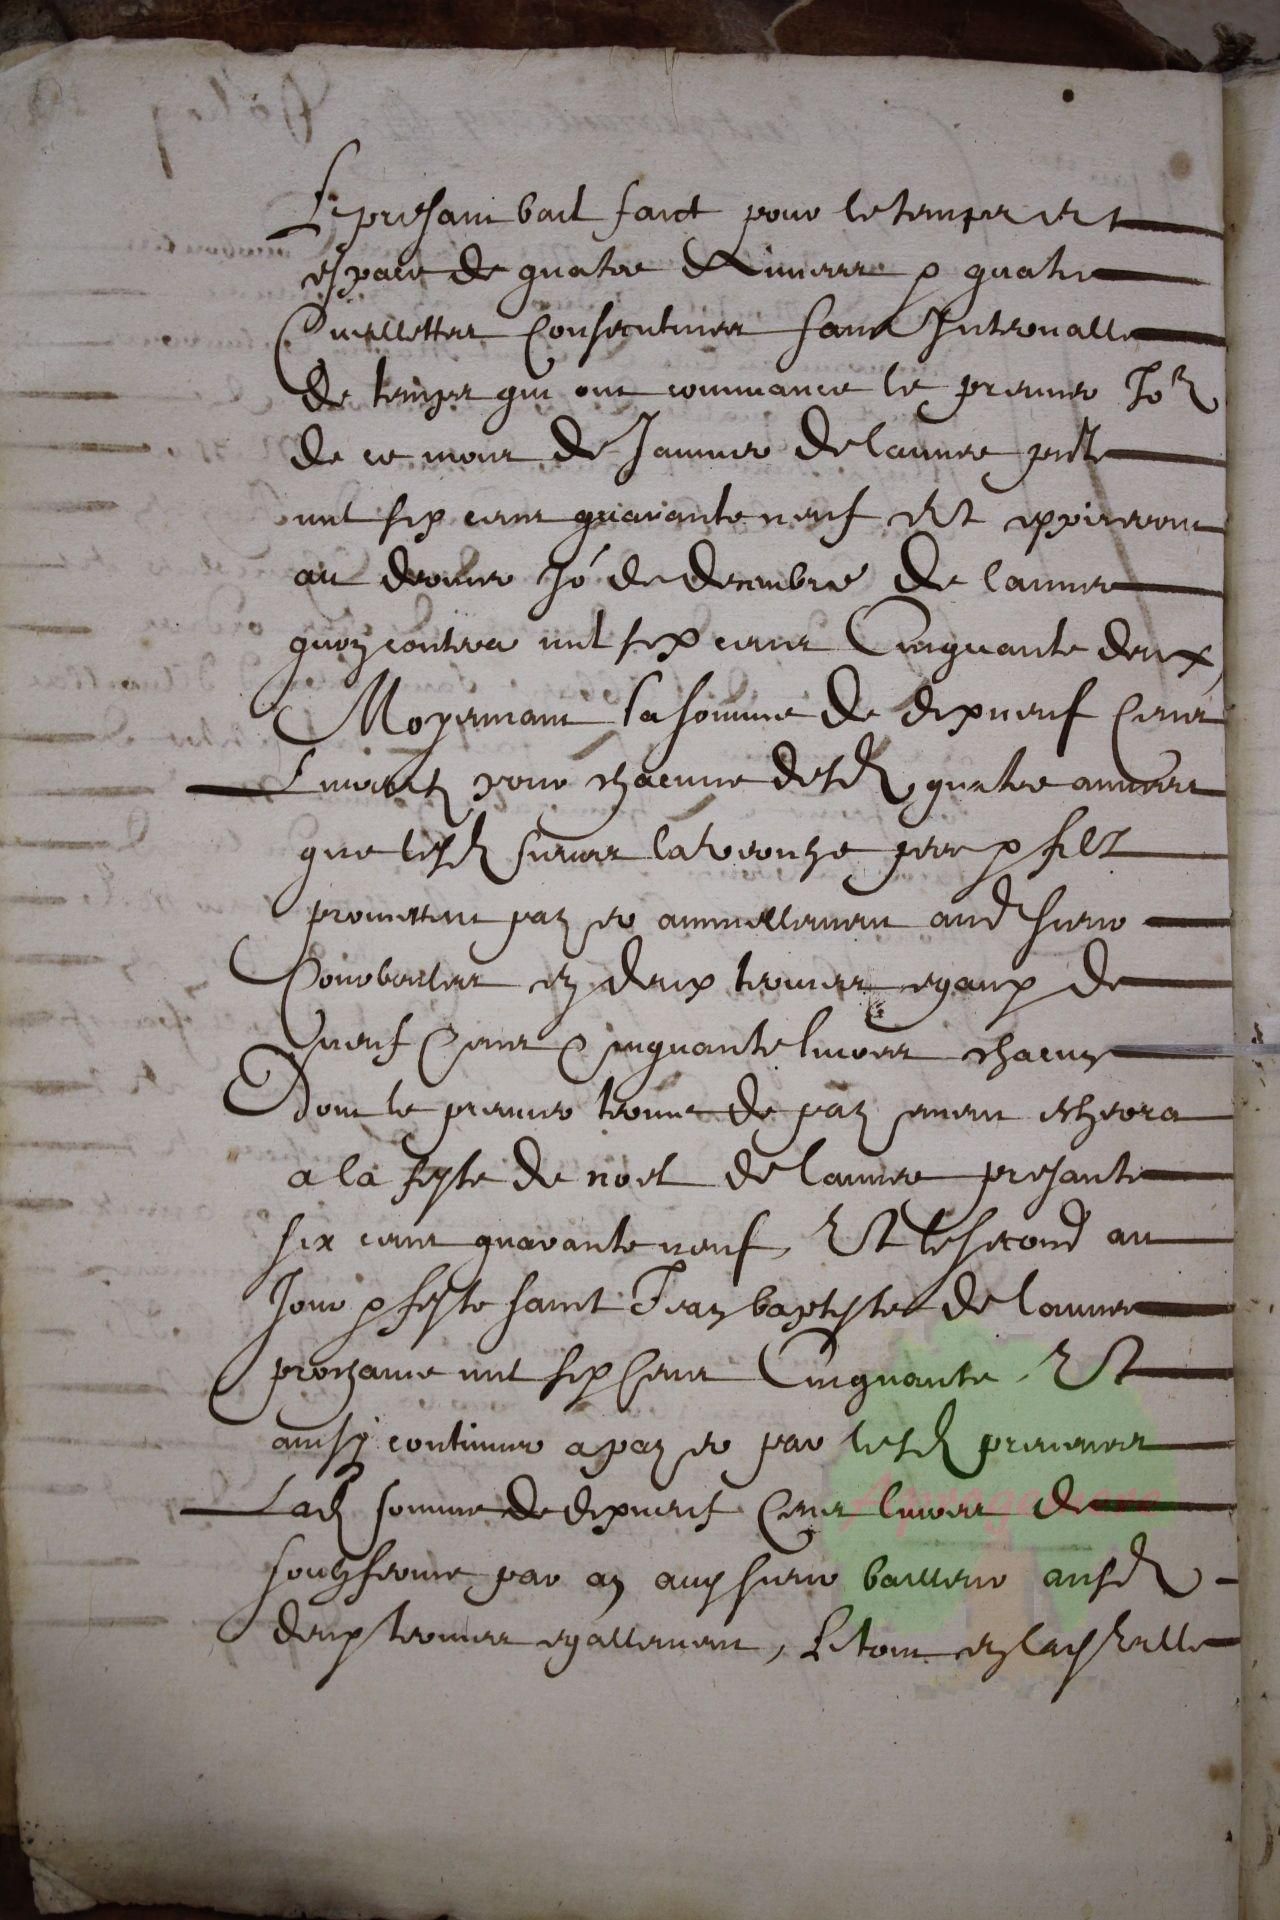 Le presant bail faict pour le temps et
espace de quatre Annees & quatre
Cueillettes Consecutives sans Intervalle
de temps qui ont commance le premier Jor
de ce mois de Janvier de lannee pnte
mil six cens quarante neuf Et expireront
au dernier Jo de decembre de lannee
quon contera mil six cens Cinquante deux,
Moyennant la somme de dix neuf Cens
Livres pour chacune desd quatre annees
que lesd sieurs pere & filz
promettent payer annuellement aud sieur
en deux termes egaux de
neuf Cens Cinquante livres chacun
Dont le premier terme de payement escherra
a la feste de noel de lannee presante
six cens quarante neuf, Et le second au
Jour & feste sainct Jean baptiste de lannee
prochaine mil six Cens Cinquante, Et
ainsy continuer a payer par lesd preneurs
Lad somme de dix neuf Cens livres de
soubz ferme par an aud sieur bailleur ausd
deux termes egallement, Le tout en la ville